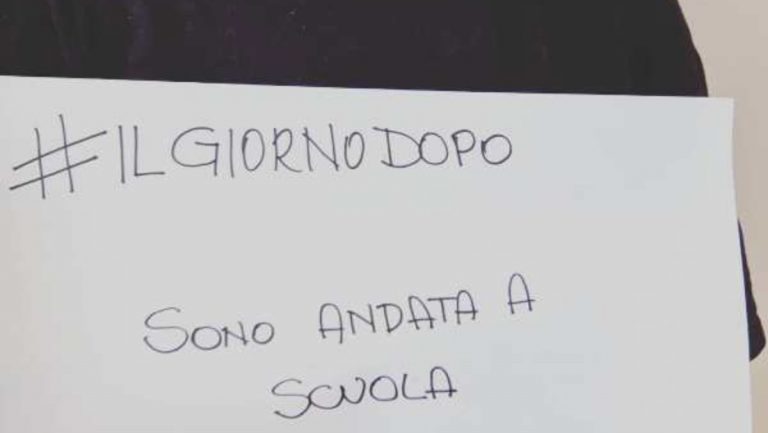 #ILGIORNODOPO
SONO ANDATA A
SCUOLA